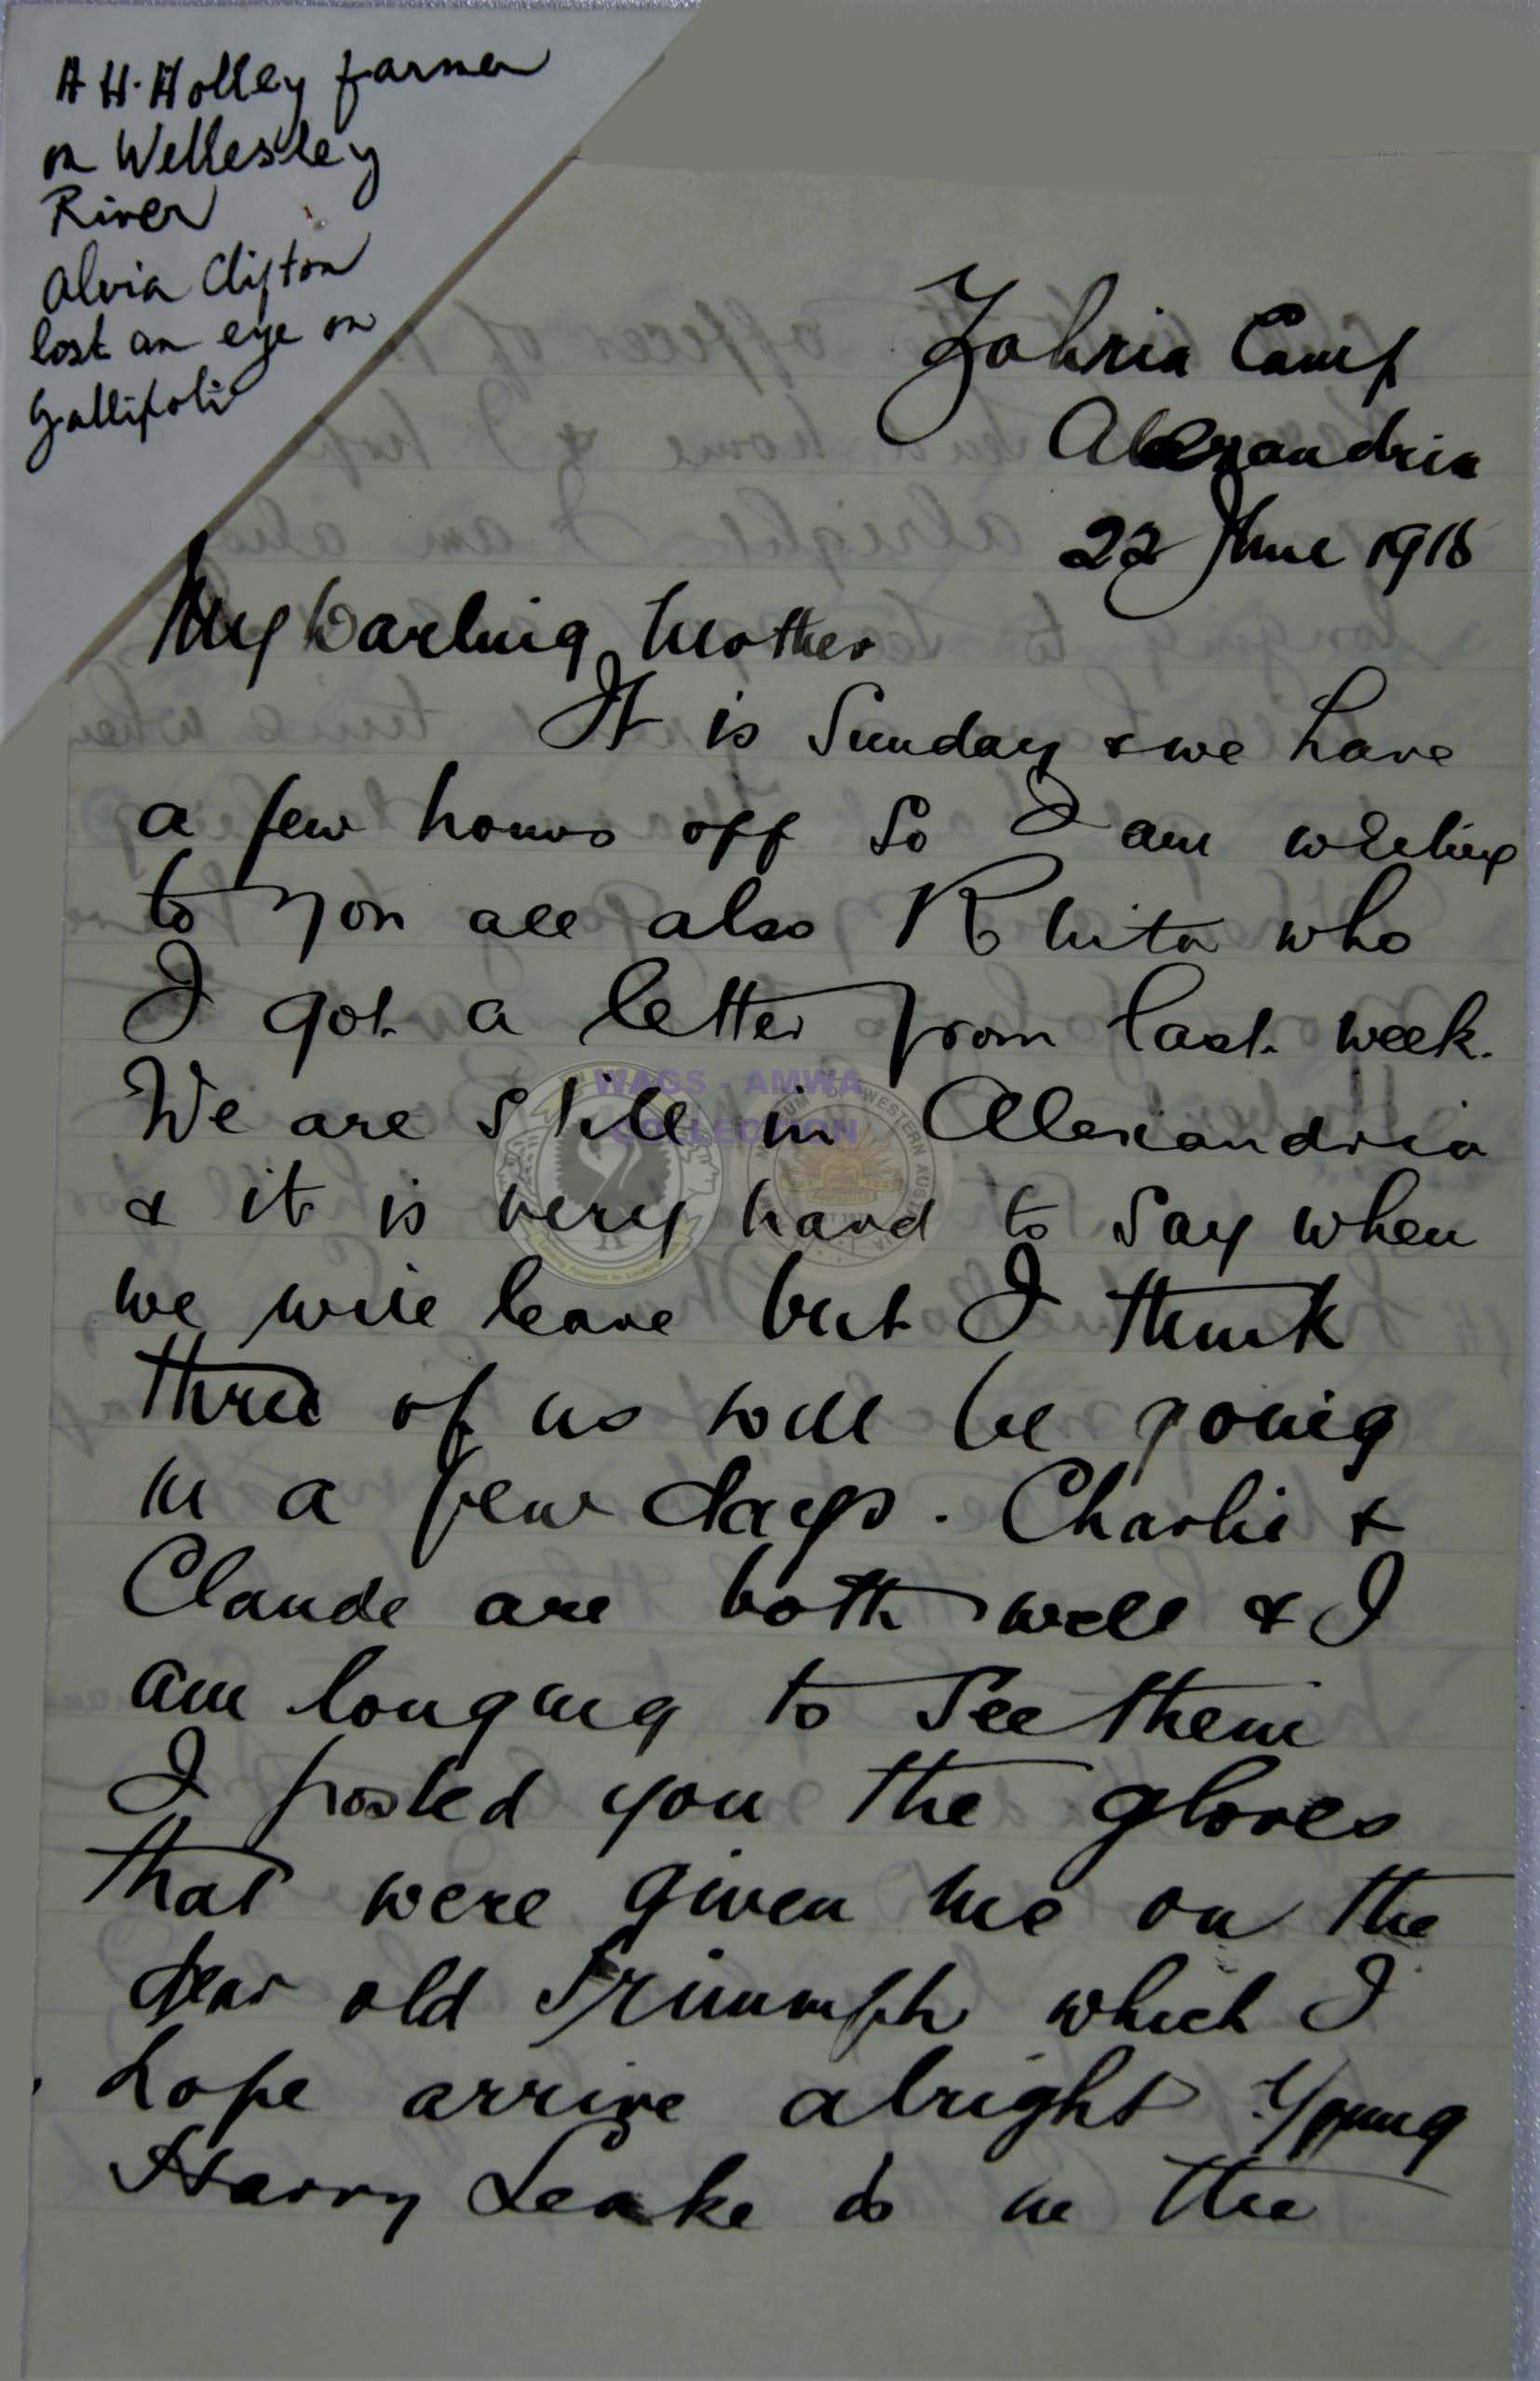 A H. Holley farmer
on Wellesley
River
Alvia Clifton
lost an eye on
Gallipoli
Zahria Camp
Alexandria
22 June 1915
My Darling Mother
It is Sunday & we have
a few hours off so I am writing
to you all also Rhita who
I got a letter from last week.
We are still in Alexandria
& it is very hard to say when
we will leave but I think
three of us will be going
in a few days. Charlie &
Claude are both well & I
am longing to see them
I posted you the gloves
that were given me on the
dear old Triumph which I
hope arrive alright Young
Harry Leake is in the
WAGS - AMWA
COLLECTION